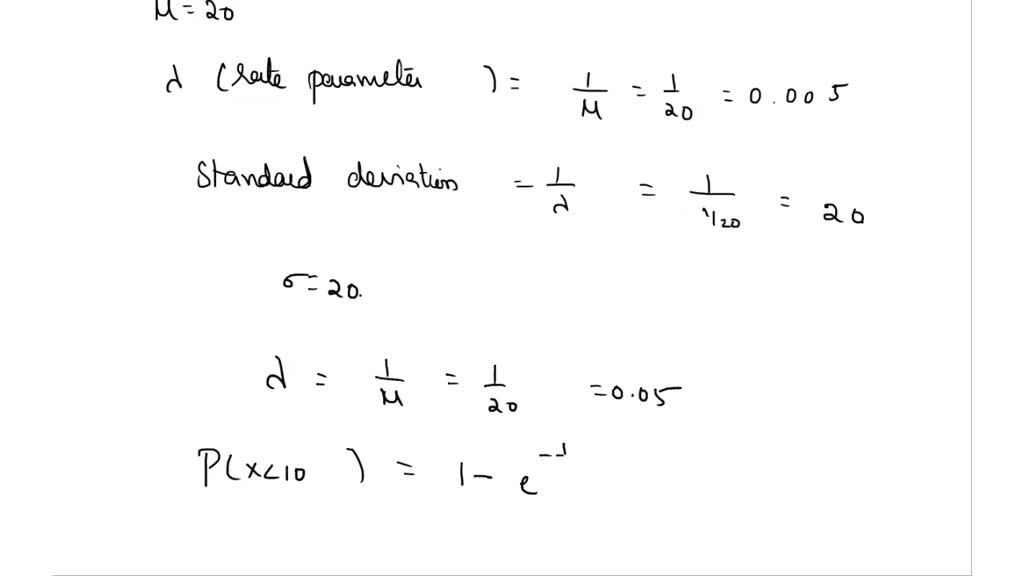 M = 20
λ (rate parameter ) = 1/M = 1/20 = 0.005
Standard deviation = 1/λ = 1/1/20 = 20
σ = 20.
λ = 1/M = 1/20 = 0.05
P(x<10 ) = 1 - e^-1